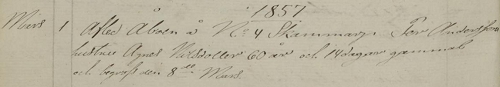 1857
Mars 1 Afled Åboen å No 4 Skammarp. Per Andersson
hustru Agnes Nilsdotter 60 år och 14 dagar gammal
och begrofs den 8de Mars.